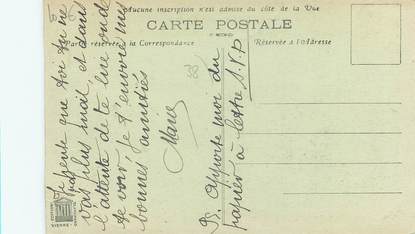 Aucune inscription n'est admise du côté de la Vue
CARTE POSTALE
Partie réservée à la Correspondance
Réservée à l'Adresse
Je pense que toi tu ne
vas plus mal, et dans
l'attente de te lire ou de
te voir je t'envoie mes
bonnes amitiés
Marie
PS. Apporte moi du
papier à lettre S.V.P